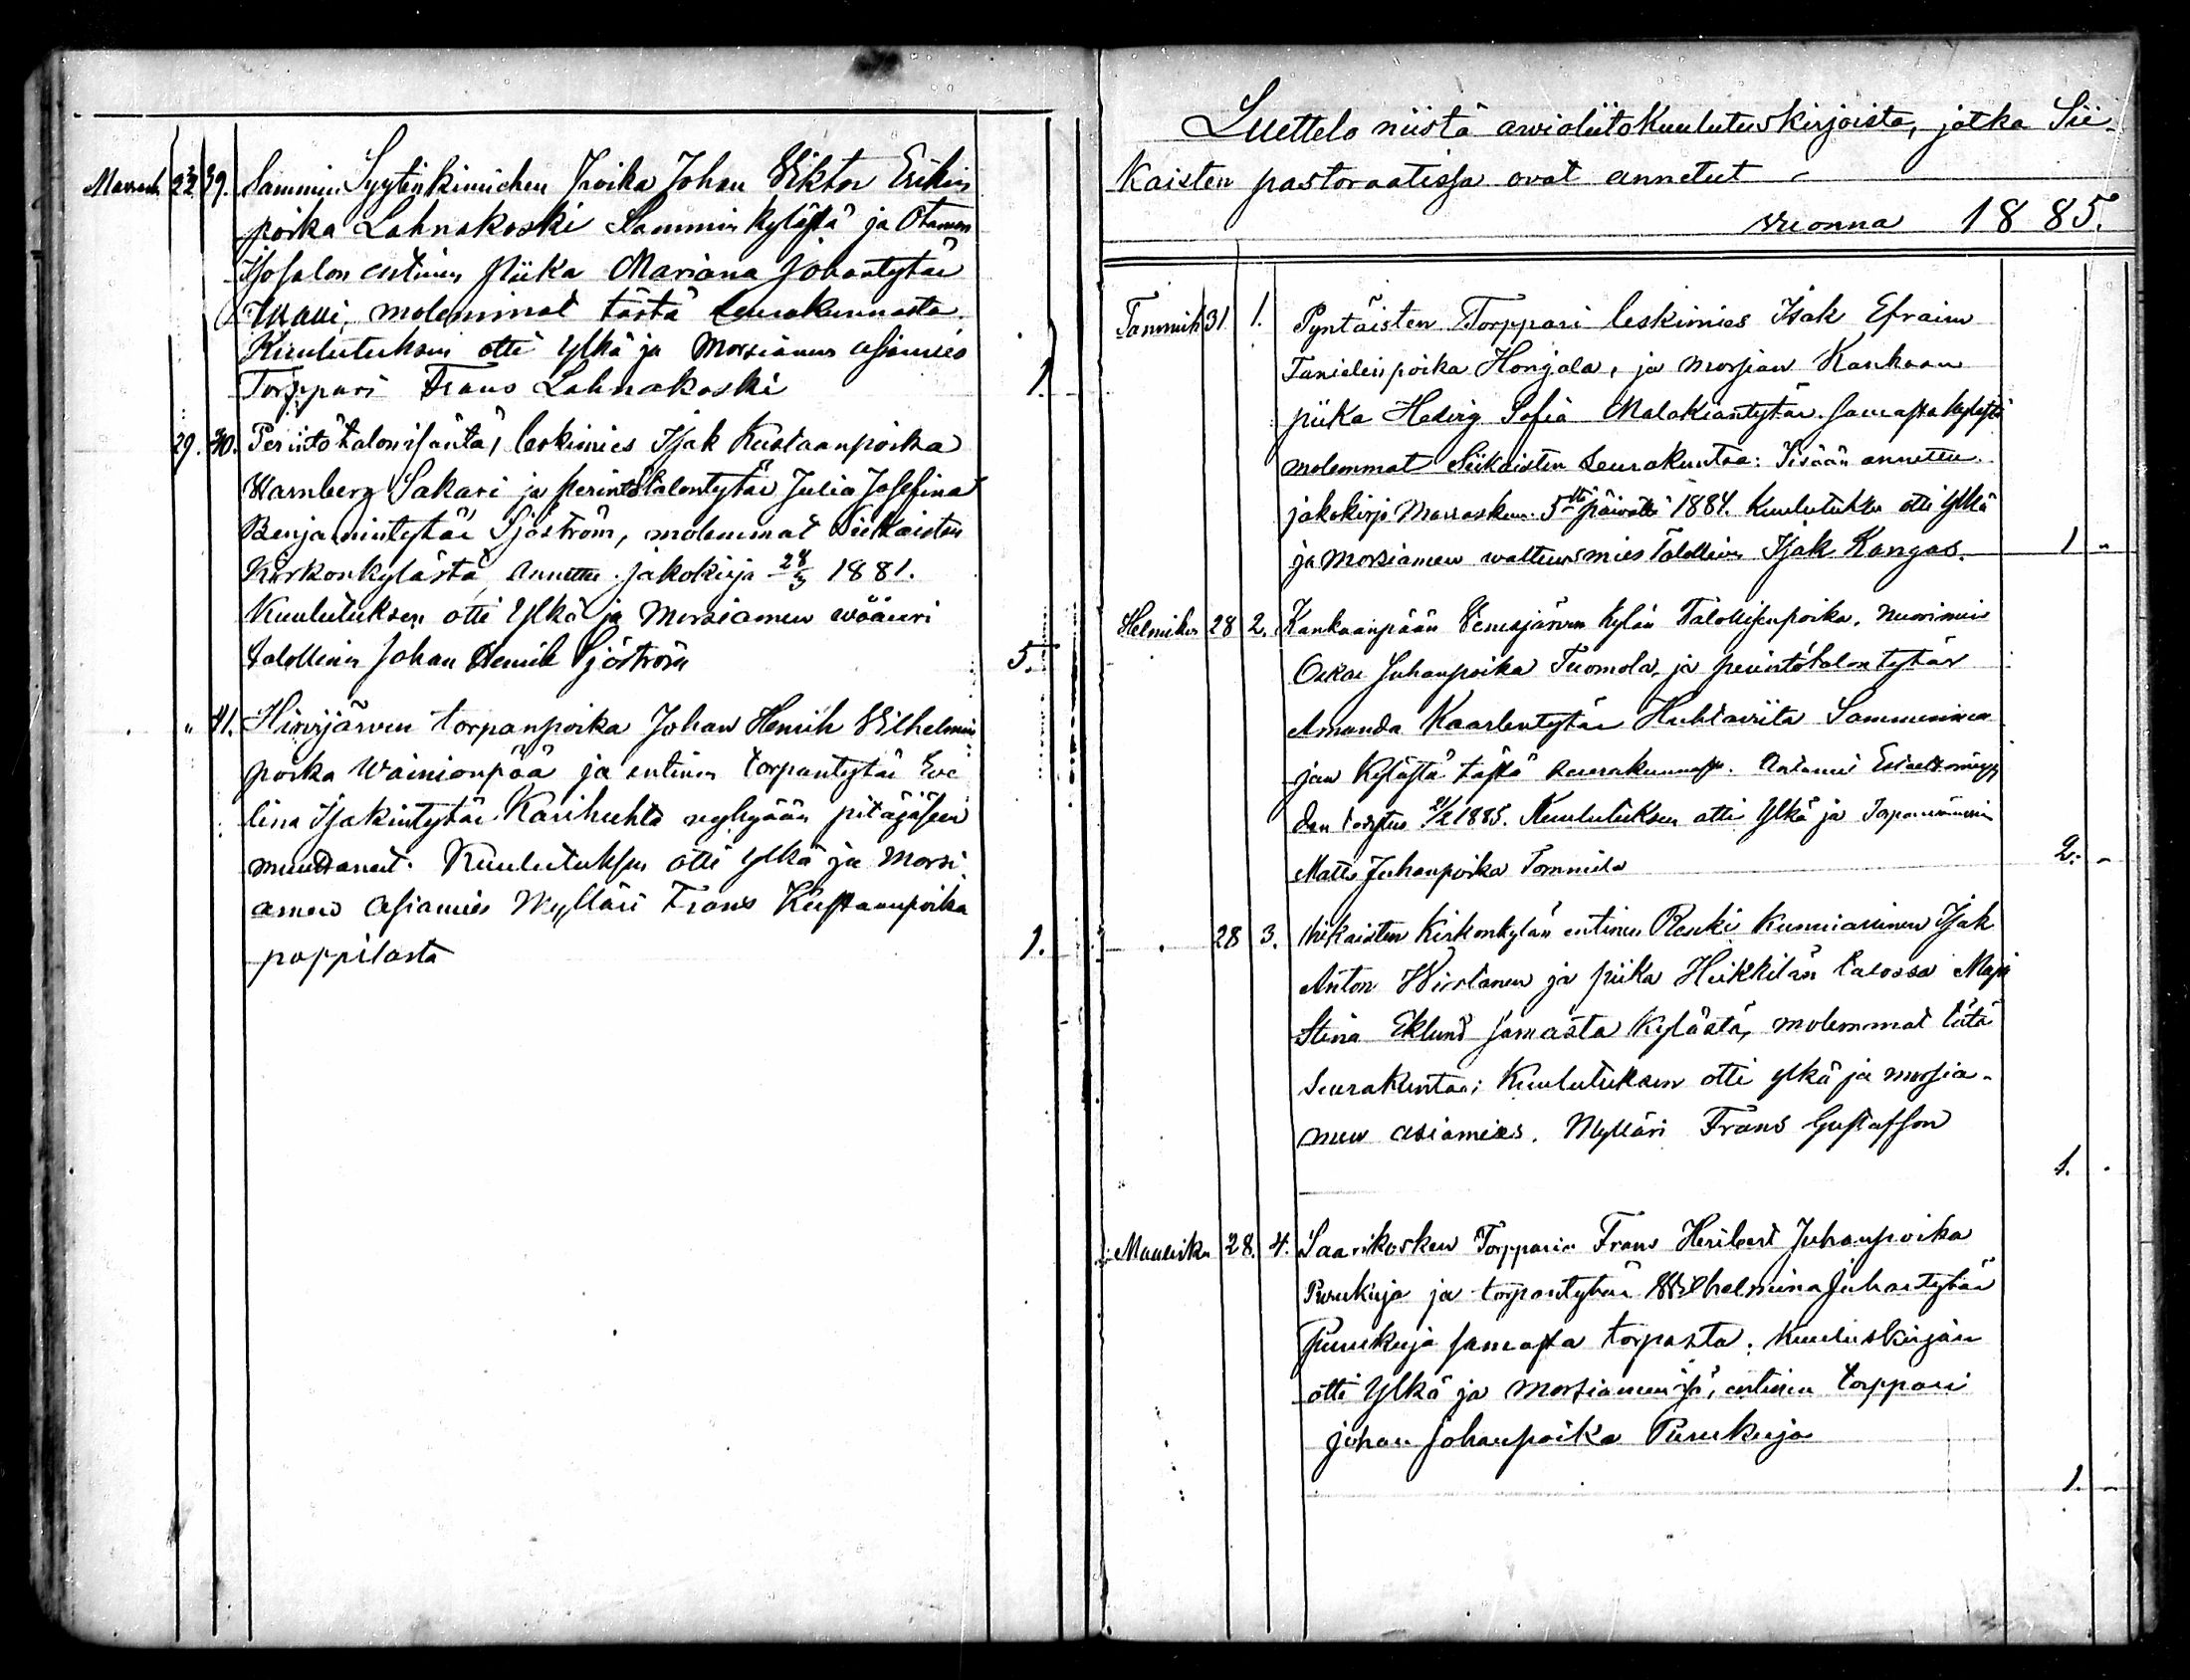 Marrask. 22 39. Sammin Syytinkimiehen Poika Johan Viktor Erikin
poika Lahnakoski Sammin kylästä ja Otamon
Isosalon entinen Piika Mariana Johantytär
molemmat tästä seurakunnasta.
Kuulutuksen otti ylkä ja Morsiamen asiamies
Torppari Frans Lahnakoski 1.
29. 40. Perintötalonisäntä, leskimies Isak Kustaanpoika
Warnberg Sakari ja perintötalontytär Julia Josefina
Benjamintytär Sjöström, molemmat Siikaisten
Kirkonkylästä, annettu jakokirja 1881.
Kuulutuksen otti Ylkä ja Morsiamen wääuri
talollinen Johan Henrik Sjöström 5.
" 41. Hirvijärven torpanpoika Johan Henrik Vilhelmin
poika Wainionpää ja entinen torpantytär Eve
lina Isakintytär Karihuhta nykyään pitäjäseen
muuttanut. Kuulutuksen otti ylkä ja Morsi
amen asiamies Mylläri Frans Kustaanpoika
pappilasta 1.
Luettelo niistä awioliitokuulutuskirjoista, jotka Sii-
kaisten pastoraatissa ovat annetut
vuonna 1885.
Tammik 31 1. Pyntäisten Torppari leskimies Isak Efraim
Tanielinpoika Hongala, ja morsian Kankaan
piika Hedvig Sofia Malakiantytär samasta kylästä
molemmat Siikaisten seurakuntaa: Sisään annettu
jakokirja Marraskuun 5 päivältä 1884. Kuulutuksen otti ylkä
ja morsiamen waltuusmies Talollinen Isak Kangas. 1 "
Helmikuu 28 2. Kankaanpään Venesjärven kylän Talollisenpoika, nuorimies
Oskar Juhanpoika Tuomola, ja perintötalontytär
Amanda Kaarlentytär Huhtaviita Sammi
jan kylästä tästä seurakunnasta.
den todistus 1885. Kuulutuksen otti ylkä ja
Matts Juhanpoika Tommila 2. -
28 3. Siikaisten Kirkonkylän entinen Renki Kunniallinen Isak
Anton Wirtanen ja piika Heikkilän talossa Maja
Stina Eklund samasta kylästä, molemmat tätä
seurakuntaa; Kuulutuksen otti ylkä ja morsia-
men asiamies. Mylläri Frans Gustafsson
1.
Maalisku 28. 4. Saarikosken Torpparin Frans Heribert Juhanpoika
Purukuja ja torpantytär Wilhelmiina Juhantytär
Purukuja samasta torpasta. Kuuluskirjan
otti Ylkä ja morsiamen isä, entinen torppari
Johan Johanpoika Purukuja
1. -